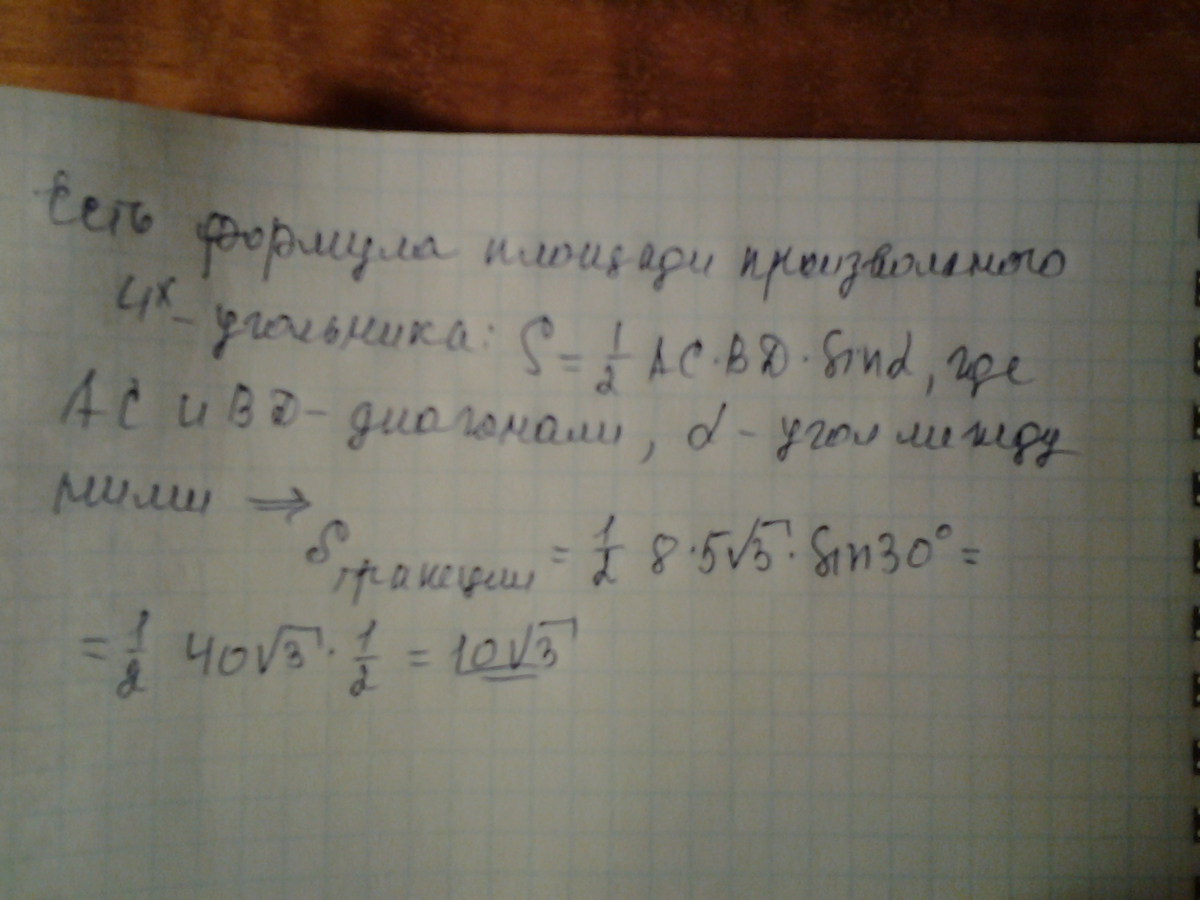 Есть формула площади произвольного
4х-угольника: S = 1/2 AC·BD·Sinα, где
AC и BD - диагонали, α - угол между
ними ⇒
Sтрапеции = 1/2 8·5√3·Sin30° =
= 1/2 40√3·1/2 = 10√3